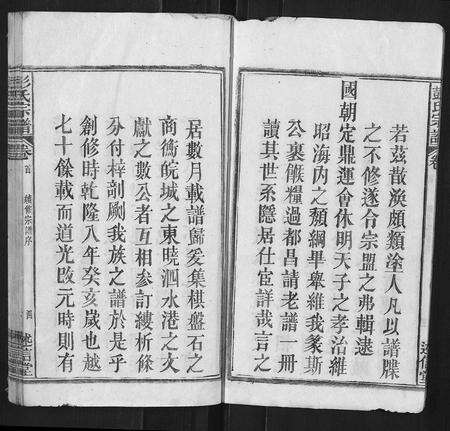 彭氏宗譜 卷
若茲散渙頗類塗人凡以譜牒
之不修遂令宗盟之弗輯逮
國朝定鼎運會休明天子之孝治維
昭海內之頹綱畢舉維我篆斯
公裹餱糧過都昌請老譜一冊
讀其世系隱居仕宦詳哉言之
述信堂
居數月載譜歸爰集棋盤石之
商衕皖城之東曉泗水港之文
獻之數公者互相參訂縷析條
分付梓剞劂我族之譜於是乎
創修時乾隆八年癸亥歲也越
七十餘載而道光改元時則有
彭氏宗譜 卷首 續修宗譜序 四 述信堂